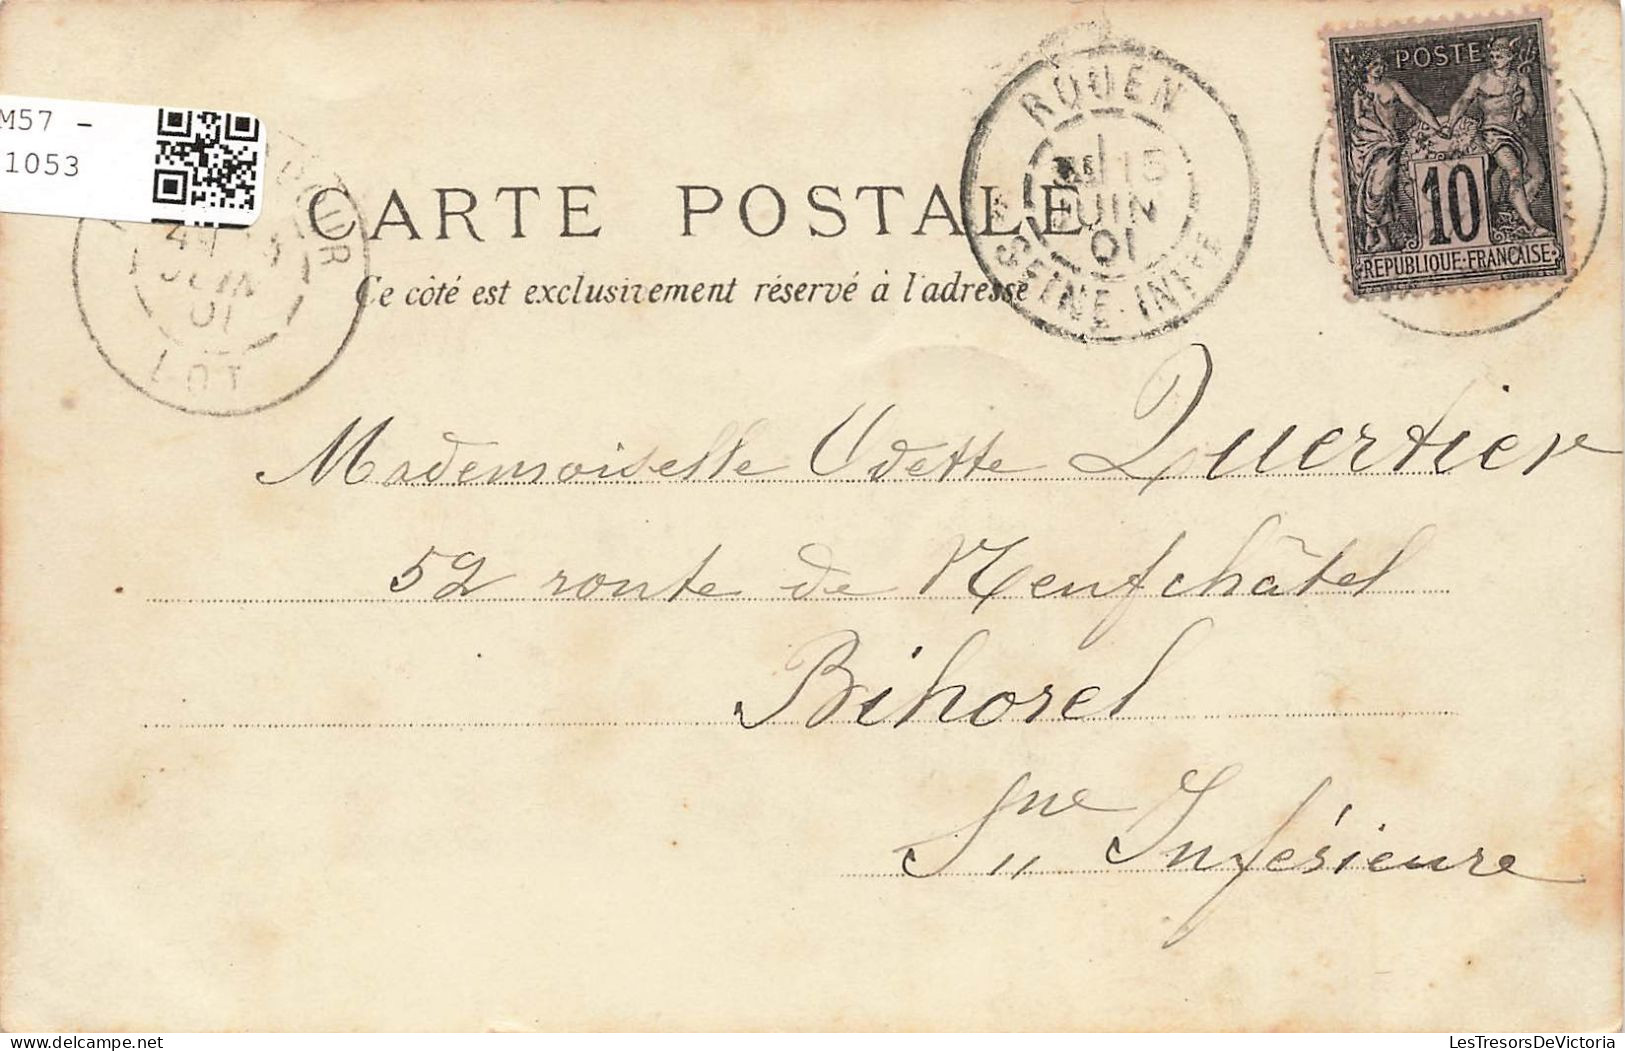 POSTE
10
REPUBLIQUE·FRANÇAISE
ROUEN
15
JUIN
01
SEINE-INFRE
M57 -
1053
JUIN
01
LOT
CARTE POSTALE
Ce côté est exclusivement réservé à l'adresse
Mademoiselle Odette Quertier
52 route de Neufchâtel
Bihorel
Sne Inférieure
LesTresorsDeVictoria